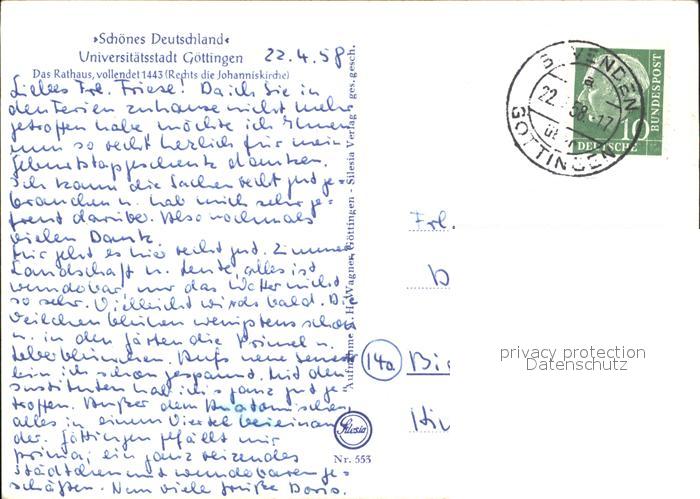 »Schönes Deutschland«
Universitätsstadt Göttingen
22.4.58
Das Rathaus, vollendet 1443 (Rechts die Johanniskirche)
Liebes Frl. Friese! Da ich Sie in
den Ferien zuhause nicht mehr
getroffen habe möchte ich Ihnen
nun so recht herzlich für mein
Geburtstagsgeschenk danken.
Ich kann die Sachen recht gut ge-
brauchen u. hab mich sehr ge-
freut darüber. Also nochmals
vielen Dank.
Mir geht es hier recht gut. Zimmer
Landschaft u. Leute, alles ist
wunderbar, nur das Wetter nicht
so sehr. Vielleicht wirds bald. D.
Veilchen blühen wenigstens schon
u. in den Gärten die Primel u.
Leberblümchen. Aufs neue Semest
bin ich schon gespannt. Mit den
Instituten hab ichs ganz gut ge-
troffen. Außer dem Anatomischen
alles in einem Viertel beieinan
der. Göttingen gefällt mir
prima; ein ganz reizendes
Städtchen mit wunderbaren Ge-
schäften. Nun viele Grüße Doris.
Aufnahme A. H. Wagner, Göttingen - Silesia Verlag - ges. gesch.
Silesia
Nr. 553
GÖTTINGEN
22. 58-17
10
DEUTSCHE
BUNDESPOST
Frl.
(14a)
privacy protection
Datenschutz